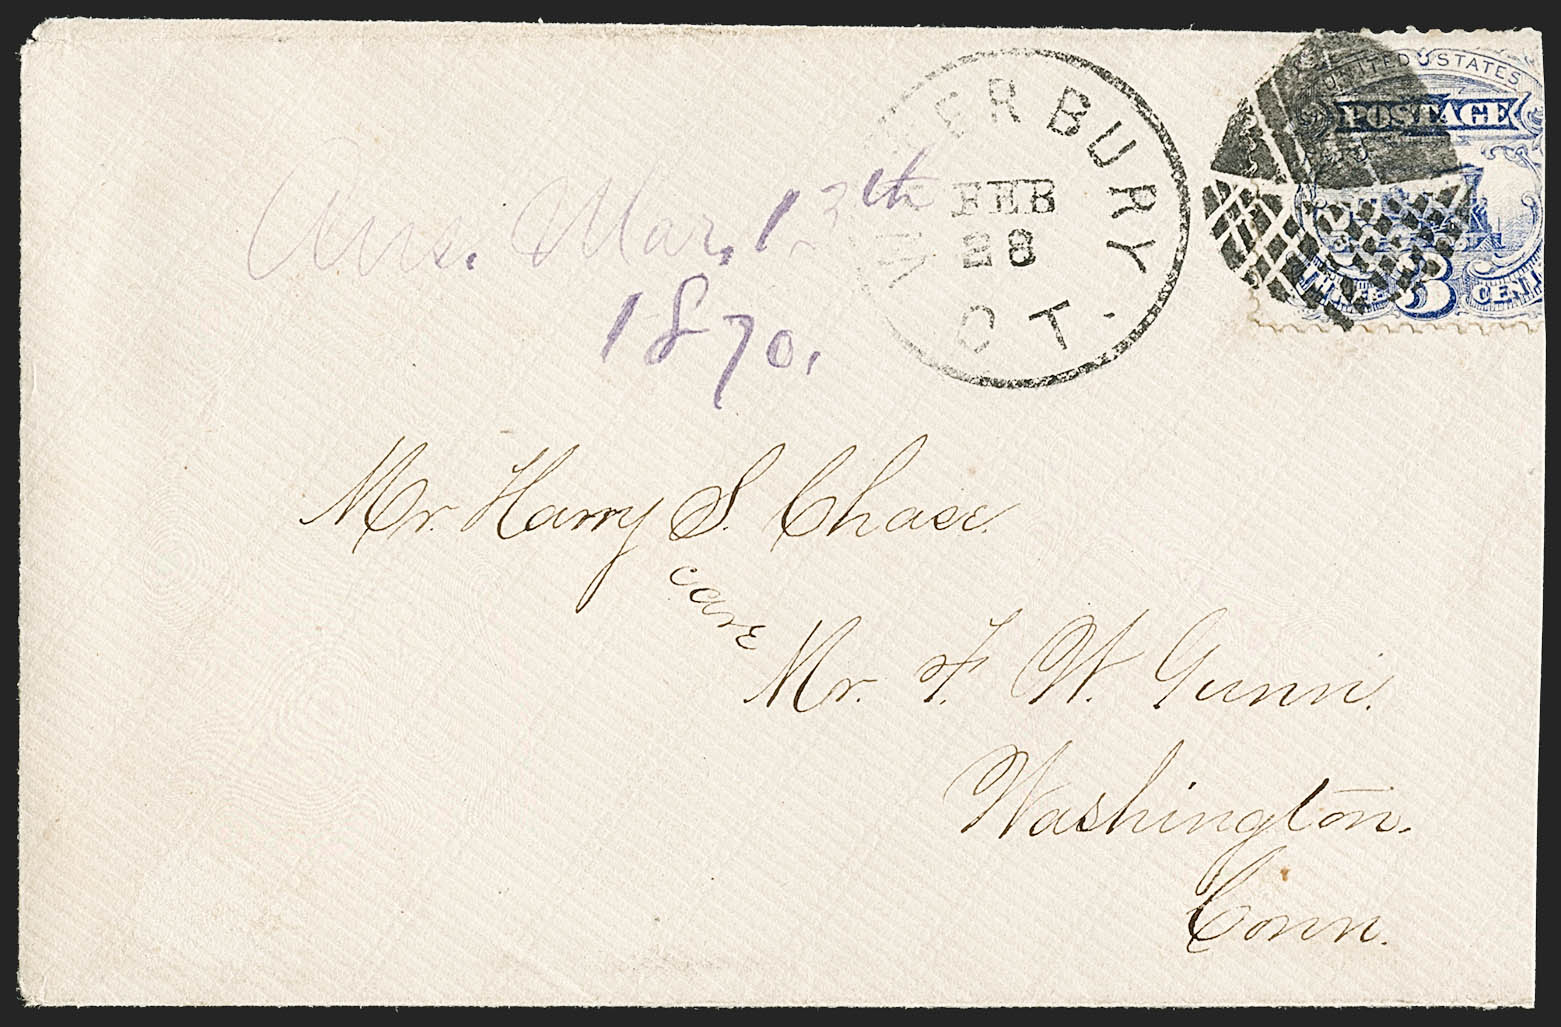 UNITED STATES
POSTAGE
THREE 3 CENT
WATERBURY
FEB
28
CT.
Ans. Mar. 13th
1870.
Mr. Harry S. Chase.
care
Mr. F. W. Gunn.
Washington.
Conn.